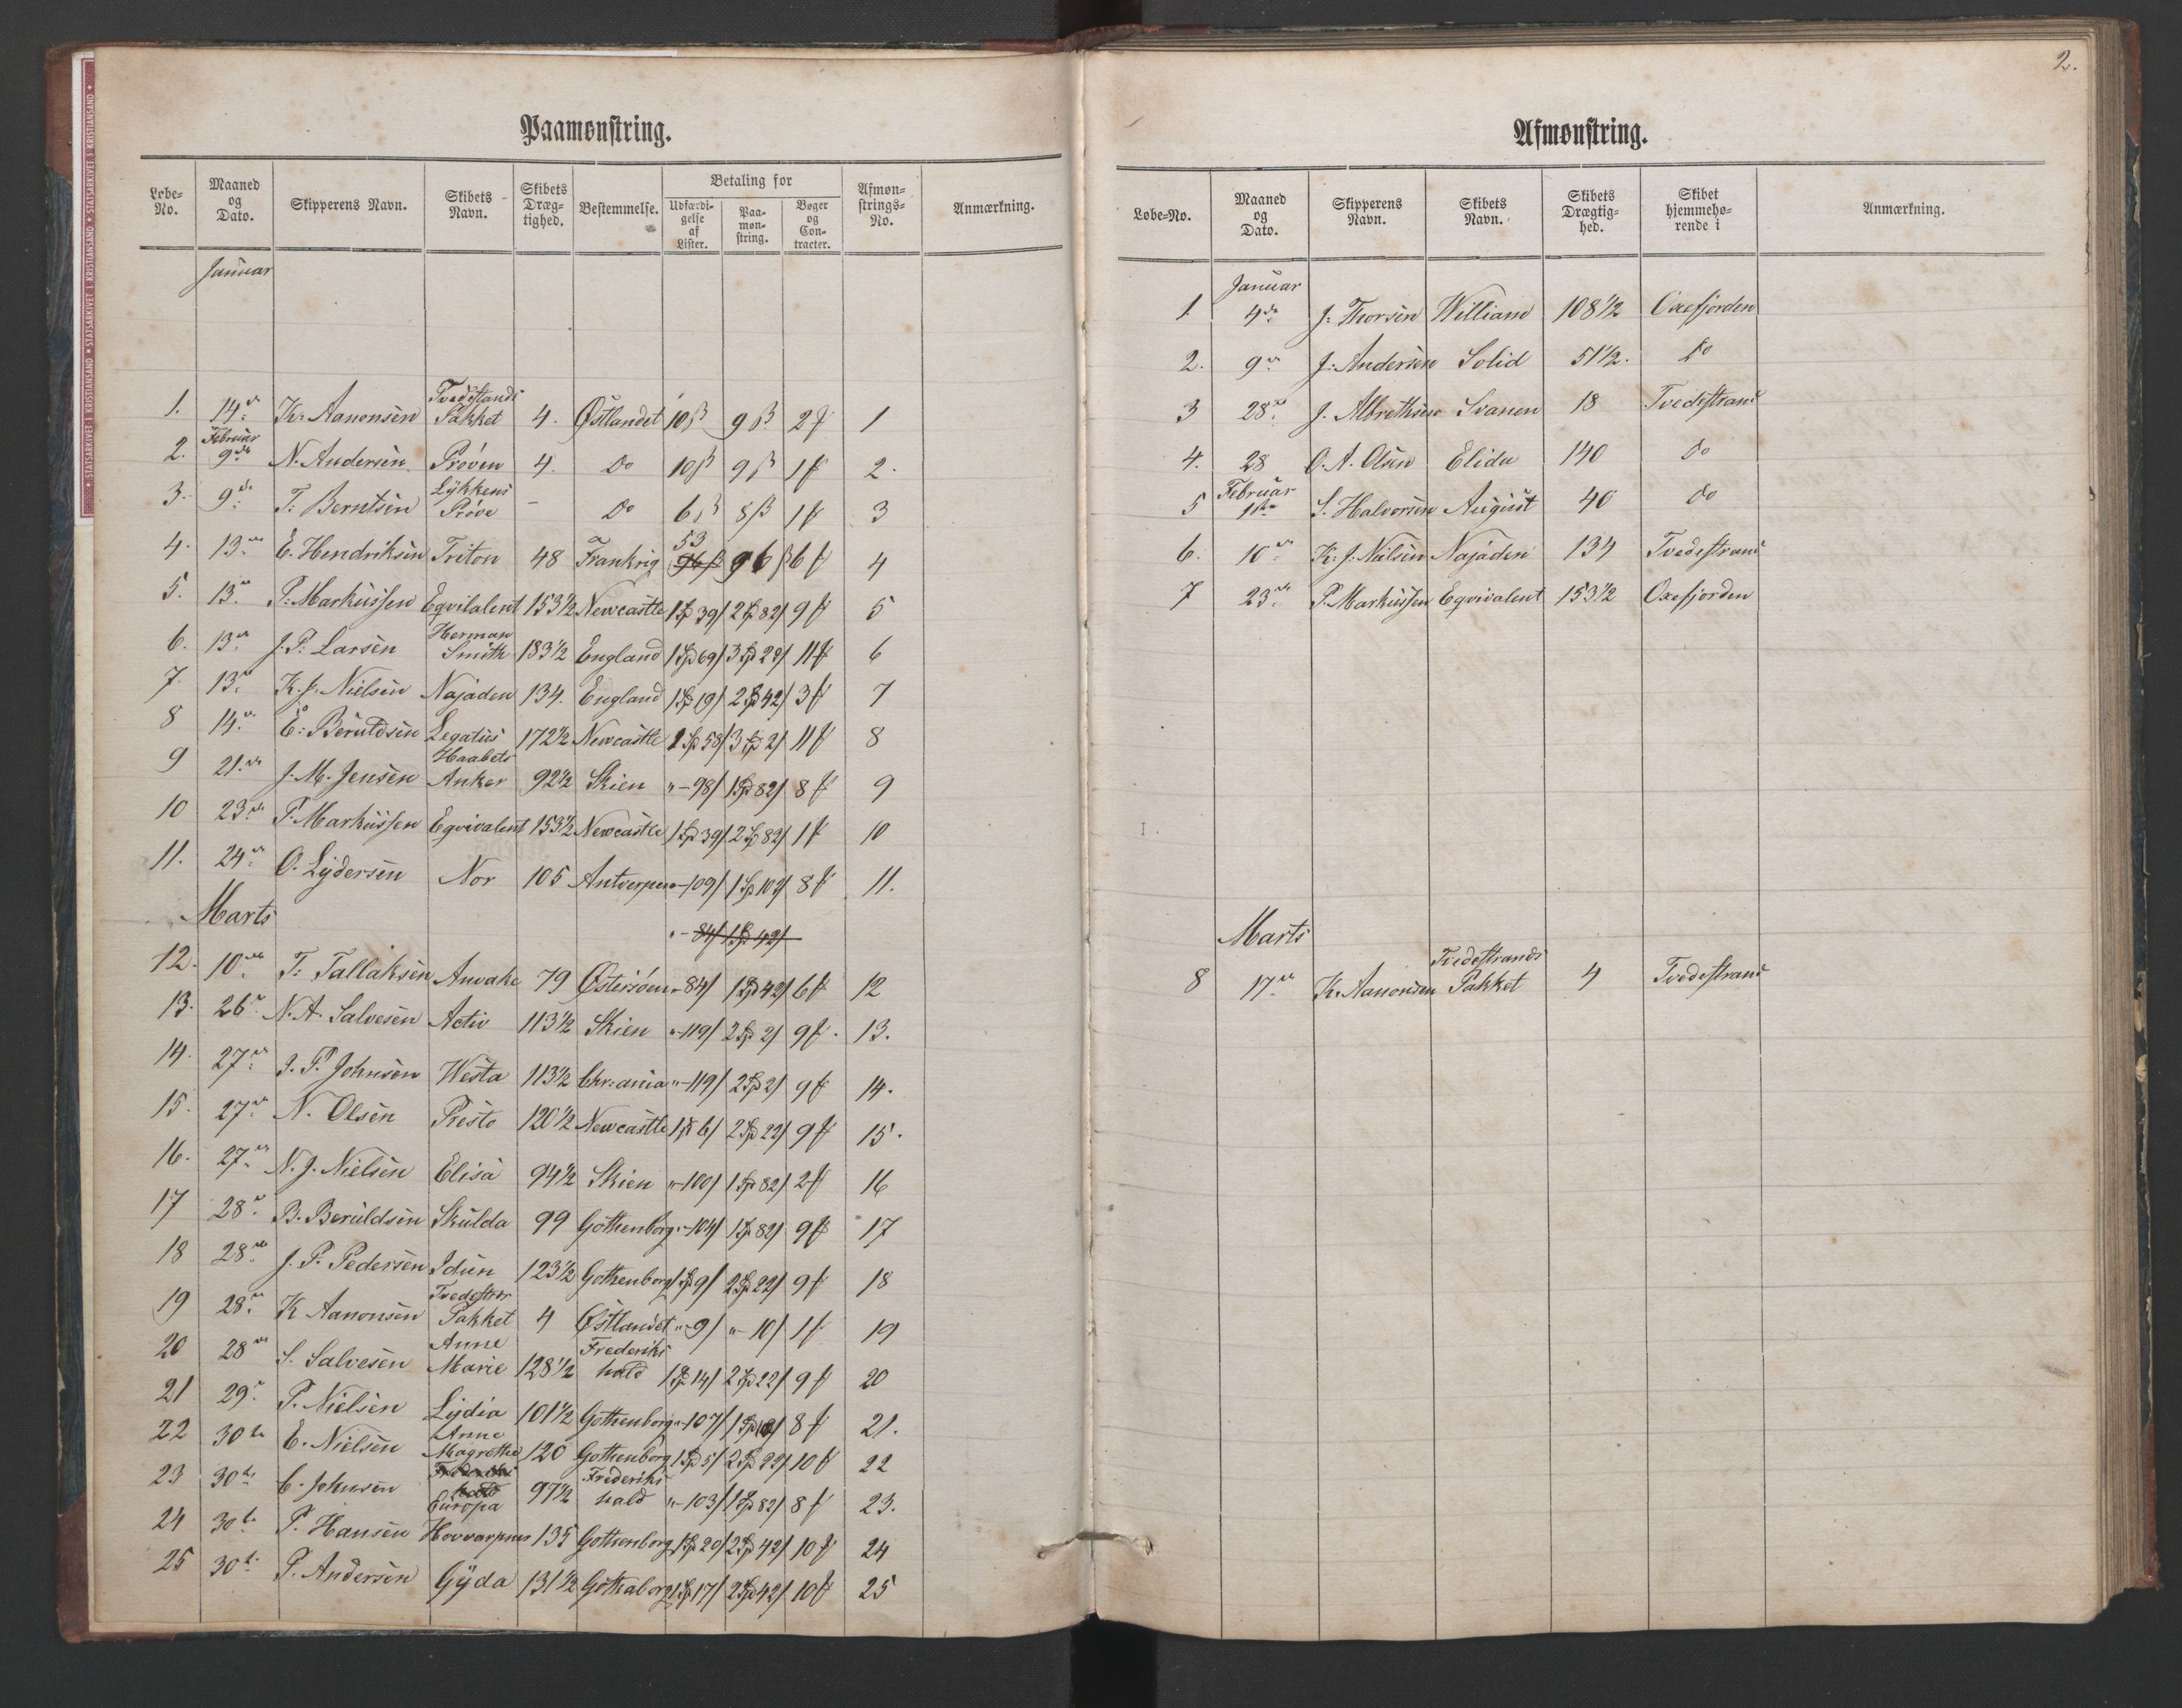 Paamønstring.
Løbe-No. Maaned og Dato. Skipperens Navn. Skibets Navn. Skibets Dræg-tighed. Bestemmelse. Betaling for Udfærdi-gelse af Lister. Paa-møn-string. Bøger og Con-tracter. Afmøn-strings-No. Anmærkning.
Januar
1. 14de K. Aanonsen Tvedestands Pakket 4. Østlandet 10 β 9 β 2 f 1
Februar
2. 9de N. Andersen Prøven 4. Do 10 β 9 β 1 f 2.
3. 9de T. Berntsen Lykkens Prøve - Do 6 β 8 β 1 f 3
4. 13de E. Hendriksen Triton 48 Frankrig 53 96 β 6 f 4
5. 13de P. Markussen Eqvilalent 153 1/2 Newcastle 1 Sp 39/ 2 Sp 82/ 9 f 5
6. 13de J. P. Larsen Herman Smith 183 1/2 England 1 Sp 69/ 3 Sp 22/ 11 f 6
7 13de K. J. Nielsen Najaden 134. England 1 Sp 19/ 2 Sp 42/ 3 f 7
8 14de E. Beruldsen Legatus 172 1/2 Newcastle 1 Sp 58/ 3 Sp 2/ 11 f 8
9 21de J. M. Jensen Haabets Anker 92 1/2 Skien " - 98/ 1 Sp 82/ 8 f 9
10 23de P. Markussen Eqvivalent 153 1/2 Newcastle 1 Sp 39/ 2 Sp 82/ 1 f 10
11. 24de O. Lydersen Nor 105 Antverpen " - 109/ 1 Sp 102/ 8 f 11.
Marts
" - 84/ 1 Sp 42/ -
12. 10de T. Tallaksen Anvake 79 Østersøen " - 84/ 1 Sp 42/ 6 f 12
13. 26de N. A. Salvesen Activ 113 1/2 Skien " - 119/ 2 Sp 2/ 9 f. 13.
14. 27de J. P. Johnsen Westa 113 1/2 Chr:ania " - 119/ 2 Sp 2/ 9 f 14.
15. 27de N. Olsen Presto 120 1/2 Newcastle 1 Sp 6/ 2 Sp 22/ 9 f 15.
16. 27de N. J. Nielsen Elisa 94 1/2 Skien " - 100/ 1 Sp 82/ 2 f 16
17 28de B. Beruldsen Skulda 99 Gothenborg " - 104/ 1 Sp 82/ 9 f 17
18 28de J. P. Pedersen Idun 123 1/2 Gothenborg 1 Sp 9/ 2 Sp 22/ 9 f 18
19 28de K Aanonsen Tvedestrs Pakket 4 Østlandet " - 9/ " - 10/ 1 f 19
20 28de S. Salvesen Anne Marie 128 1/2 Frederiks hald 1 Sp 14/ 2 Sp 22/ 9 f 20
21 29de P. Nielsen Lydia 101 1/2 Gothenborg " - 107/ 1 Sp 102/ 8 f 21.
22 30te E. Nielsen Anne Magrethe 120 Gothenborg 1 Sp 5/ 2 Sp 22/ 10 f 22
23 30te C. Johnsen Frederiks hald Europa 97 1/2 Frederiks hald " - 103/ 1 Sp 82/ 8 f 23.
24 30te P. Hansen Hovvarpnur 135 Gothenborg 1 Sp 20/ 2 Sp 42/ 10 f 24
25 30te P. Andersen Gyda 131 1/2 Gothaborg 1 Sp 17/ 2 Sp 42/ 10 f 25
2.
Afmønstring.
Løbe-No. Maaned og Dato. Skipperens Navn. Skibets Navn. Skibets Drægtig-hed. Skibet hjemmehø-rende i Anmærkning.
Januar
1 4de J. Thorsen William 108 1/2 Oxefjorden
2. 9de J. Andersen Solid 51 1/2. Do
3 28de J. Albrethsen Svanen 18 Tvedestrand
4. 28 O. A. Olsen Elida 140 Do
Februar
5 1ste S. Halvorsen August 40 Do
6. 10de K. J. Nielsen Najaden 134 Tvedestrand
7 23de P. Markussen Eqvivalent 153 1/2 Oxefjorden
Marts
8 17de K. Aanonsen Tvedestrands Pakket 4 Tvedestrand
STATSARKIVET I KRISTIANSAND • STATSARKIVET I KRISTIANSAND • STATSARKIVET I KRISTIANSAND • STATSARKIVET I KRISTIANSAND